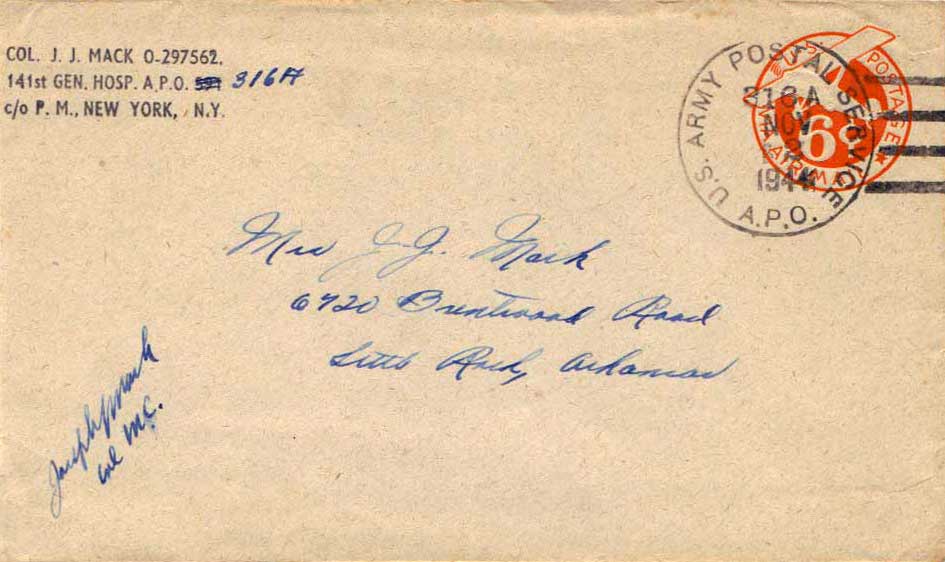 COL. J. J. MACK O-297562.
141st GEN. HOSP. A.P.O. 316A
c/o P. M., NEW YORK, N.Y.
U.S. ARMY POSTAL SERVICE
NOV
1944
A.P.O.
POSTAGE
6¢
AIRMAIL
Mrs J. J. Mack
6720 Brentwood Road
Little Rock, Arkansas
Joseph J Mack
Col MC.